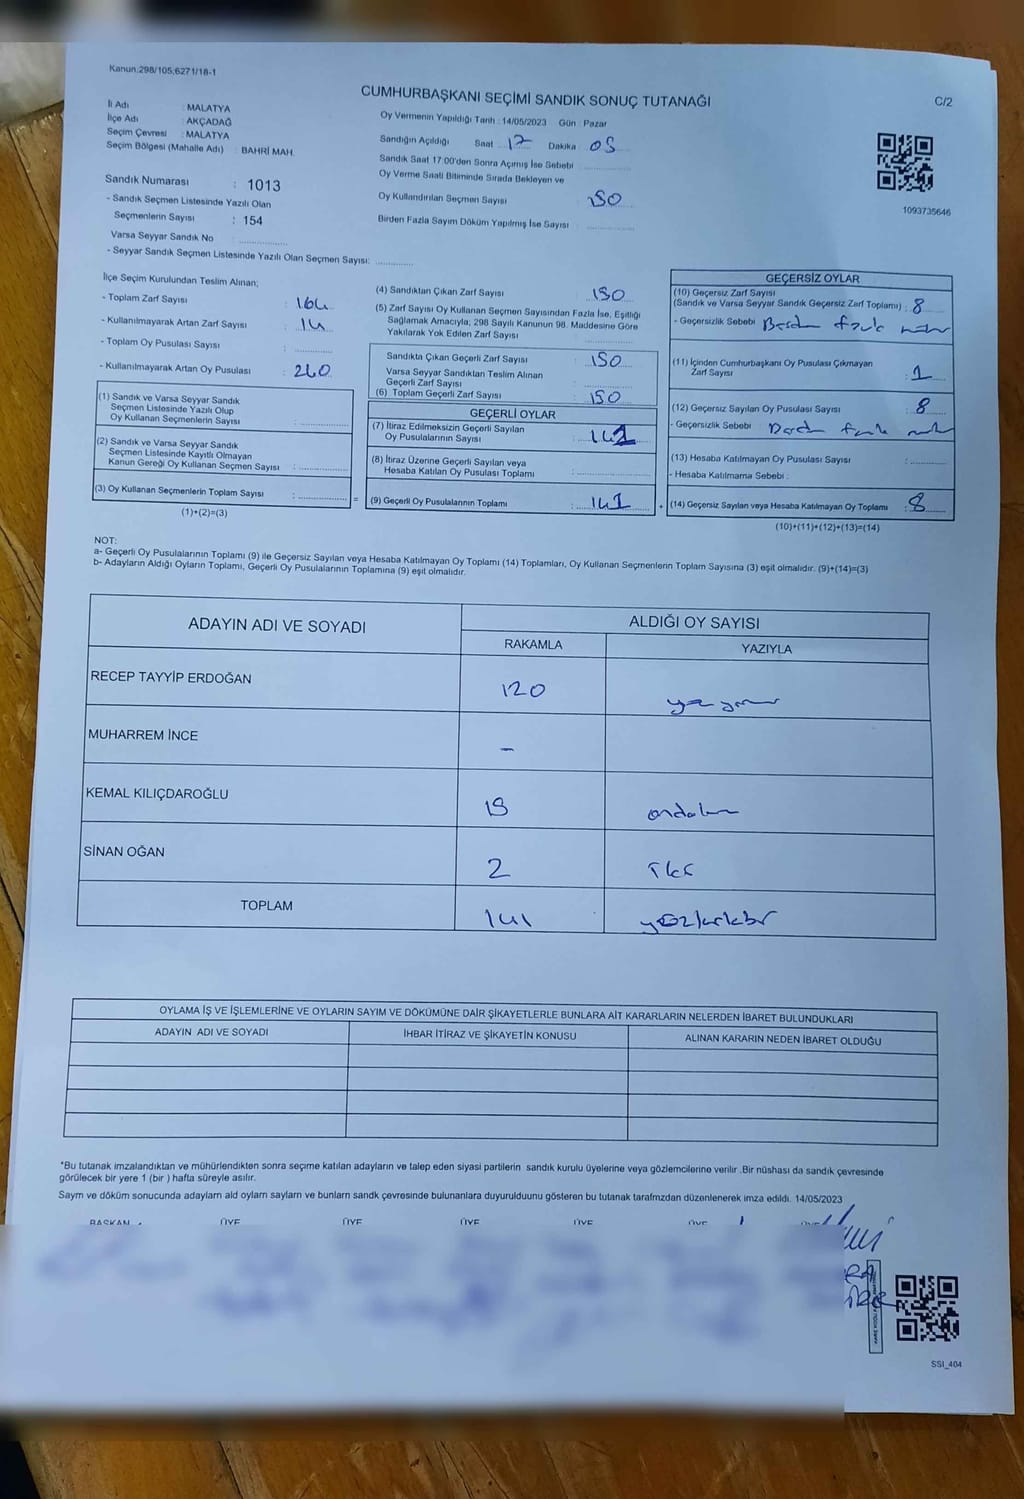 Kanun:298/105;6271/18-1
CUMHURBAŞKANI SEÇİMİ SANDIK SONUÇ TUTANAĞI
C/2
İl Adı : MALATYA
İlçe Adı : AKÇADAĞ
Seçim Çevresi : MALATYA
Seçim Bölgesi (Mahalle Adı) : BAHRİ MAH.
Sandık Numarası : 1013
- Sandık Seçmen Listesinde Yazılı Olan
Seçmenlerin Sayısı : 154
Varsa Seyyar Sandık No
- Seyyar Sandık Seçmen Listesinde Yazılı Olan Seçmen Sayısı:
Oy Vermenin Yapıldığı Tarih : 14/05/2023 Gün : Pazar
Sandığın Açıldığı Saat 17 Dakika 05
Sandık Saat 17:00'den Sonra Açmış İse Sebebi
Oy Verme Saati Bitiminde Sırada Bekleyen ve
Oy Kullandırılan Seçmen Sayısı 150
Birden Fazla Sayım Döküm Yapılmış İse Sayısı
1093735646
İlçe Seçim Kurulundan Teslim Alınan;
- Toplam Zarf Sayısı : 164
- Kullanılmayarak Artan Zarf Sayısı : 14
- Toplam Oy Pusulası Sayısı :
- Kullanılmayarak Artan Oy Pusulası : 260
(1) Sandık ve Varsa Seyyar Sandık
Seçmen Listesinde Yazılı Olup
Oy Kullanan Seçmenlerin Sayısı :
(2) Sandık ve Varsa Seyyar Sandık
Seçmen Listesinde Kayıtlı Olmayan
Kanun Gereği Oy Kullanan Seçmen Sayısı :
(3) Oy Kullanan Seçmenlerin Toplam Sayısı :
(1)+(2)=(3)
(4) Sandıktan Çıkan Zarf Sayısı 150
(5) Zarf Sayısı Oy Kullanan Seçmen Sayısından Fazla İse, Eşitliği
Sağlamak Amacıyla; 298 Sayılı Kanunun 98. Maddesine Göre
Yakılarak Yok Edilen Zarf Sayısı
Sandıkta Çıkan Geçerli Zarf Sayısı 150
Varsa Seyyar Sandıktan Teslim Alınan
Geçerli Zarf Sayısı
(6) Toplam Geçerli Zarf Sayısı 150
GEÇERLİ OYLAR
(7) İtiraz Edilmeksizin Geçerli Sayılan
Oy Pusulalarının Sayısı : 141
(8) İtiraz Üzerine Geçerli Sayılan veya
Hesaba Katılan Oy Pusulası Toplamı :
= (9) Geçerli Oy Pusulalarının Toplamı : 141
GEÇERSİZ OYLAR
(10) Geçersiz Zarf Sayısı
(Sandık ve Varsa Seyyar Sandık Geçersiz Zarf Toplamı) : 8
- Geçersizlik Sebebi fazla mühür
(11) İçinden Cumhurbaşkanı Oy Pusulası Çıkmayan
Zarf Sayısı : 1
(12) Geçersiz Sayılan Oy Pusulası Sayısı : 8
- Geçersizlik Sebebi : fazla
(13) Hesaba Katılmayan Oy Pusulası Sayısı :
- Hesaba Katılmama Sebebi :
+ (14) Geçersiz Sayılan veya Hesaba Katılmayan Oy Toplamı : 8
(10)+(11)+(12)+(13)=(14)
NOT:
a- Geçerli Oy Pusulalarının Toplamı (9) ile Geçersiz Sayılan veya Hesaba Katılmayan Oy Toplamı (14) Toplamları, Oy Kullanan Seçmenlerin Toplam Sayısına (3) eşit olmalıdır. (9)+(14)=(3)
b- Adayların Aldığı Oyların Toplamı, Geçerli Oy Pusulalarının Toplamına (9) eşit olmalıdır.
ADAYIN ADI VE SOYADI
ALDIĞI OY SAYISI
RAKAMLA YAZIYLA
RECEP TAYYİP ERDOĞAN 120
MUHARREM İNCE -
KEMAL KILIÇDAROĞLU 19
SİNAN OĞAN 2 İki
TOPLAM 141 yüzkırkbir
OYLAMA İŞ VE İŞLEMLERİNE VE OYLARIN SAYIM VE DÖKÜMÜNE DAİR ŞİKAYETLERLE BUNLARA AİT KARARLARIN NELERDEN İBARET BULUNDUKLARI
ADAYIN ADI VE SOYADI İHBAR İTİRAZ VE ŞİKAYETİN KONUSU ALINAN KARARIN NEDEN İBARET OLDUĞU
*Bu tutanak imzalandıktan ve mühürlendikten sonra seçime katılan adayların ve talep eden siyasi partilerin sandık kurulu üyelerine veya gözlemcilerine verilir .Bir nüshası da sandık çevresinde
görülecek bir yere 1 (bir ) hafta süreyle asılır.
Saym ve döküm sonucunda adaylarn ald oylarn saylarn ve bunlarn sandk çevresinde bulunanlara duyurulduunu gösteren bu tutanak tarafmzdan düzenlenerek imza edildi. 14/05/2023
BAŞKAN ÜYE ÜYE ÜYE ÜYE ÜYE
SSI_404